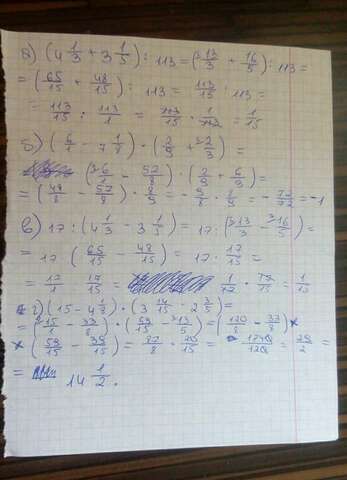 а) (4 1/3 + 3 1/5) : 113 = (13/3 + 16/5) : 113 =
= (65/15 + 48/15) : 113 = 113/15 : 113 =
= 113/15 : 113/1 = 113/15 · 1/113 = 1/15
б) (6/1 - 7 1/8) · (2/9 + 2/3) =
(6/1 - 57/8) · (2/9 + 6/9) =
= (48/8 - 57/8) · 8/9 = - 9/8 · 8/9 = - 72/72 = -1
в) 17 : (4 1/3 - 3 1/5) = 17 : (13/3 - 16/5) =
= 17 (65/15 - 48/15) = 17 · 17/15 =
= 17/1 17/15 = 1/17 · 17/15 = 1/15
г) (15 - 4 1/8) · (3 14/15 - 2 3/5) =
= (15/1 - 33/8) · (59/15 - 13/5) = (120/8 - 33/8) ×
× (59/15 - 39/15) = 87/8 · 20/15 = 1740/120 = 29/2 =
= 14 1/2.